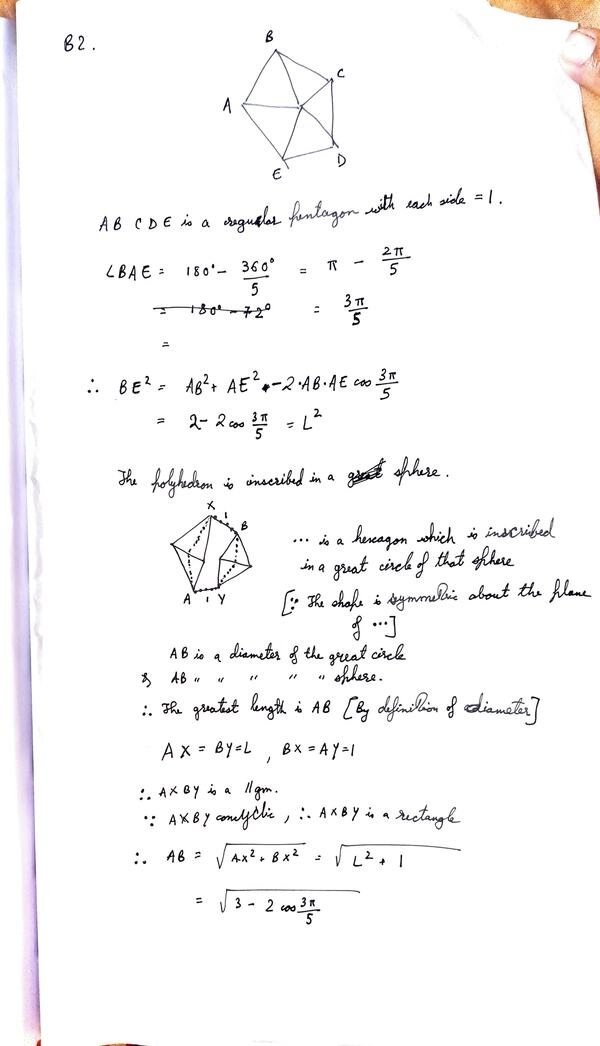 B2.
B
C
A
D
E
A B C D E is a regular pentagon with each side = 1.
∠BAE = 180° - 360°/5 = π - 2π/5
= 180° - 72° = 3π/5
=
∴ BE² = AB² + AE² - 2·AB·AE cos 3π/5
= 2 - 2 cos 3π/5 = L²
The polyhedron is inscribed in a great sphere.
X 1 B
A 1 Y
... is a hexagon which is inscribed
in a great circle of that sphere
[∵ The shape is symmetric about the plane
of ...]
AB is a diameter of the great circle
& AB " " " " sphere.
∴ The greatest length is AB [By definition of diameter]
AX = BY = L , BX = AY = 1
∴ AXBY is a ||gm.
∵ AXBY concyclic , ∴ AXBY is a rectangle
∴ AB = √(AX² + BX²) = √(L² + 1)
= √(3 - 2 cos 3π/5)